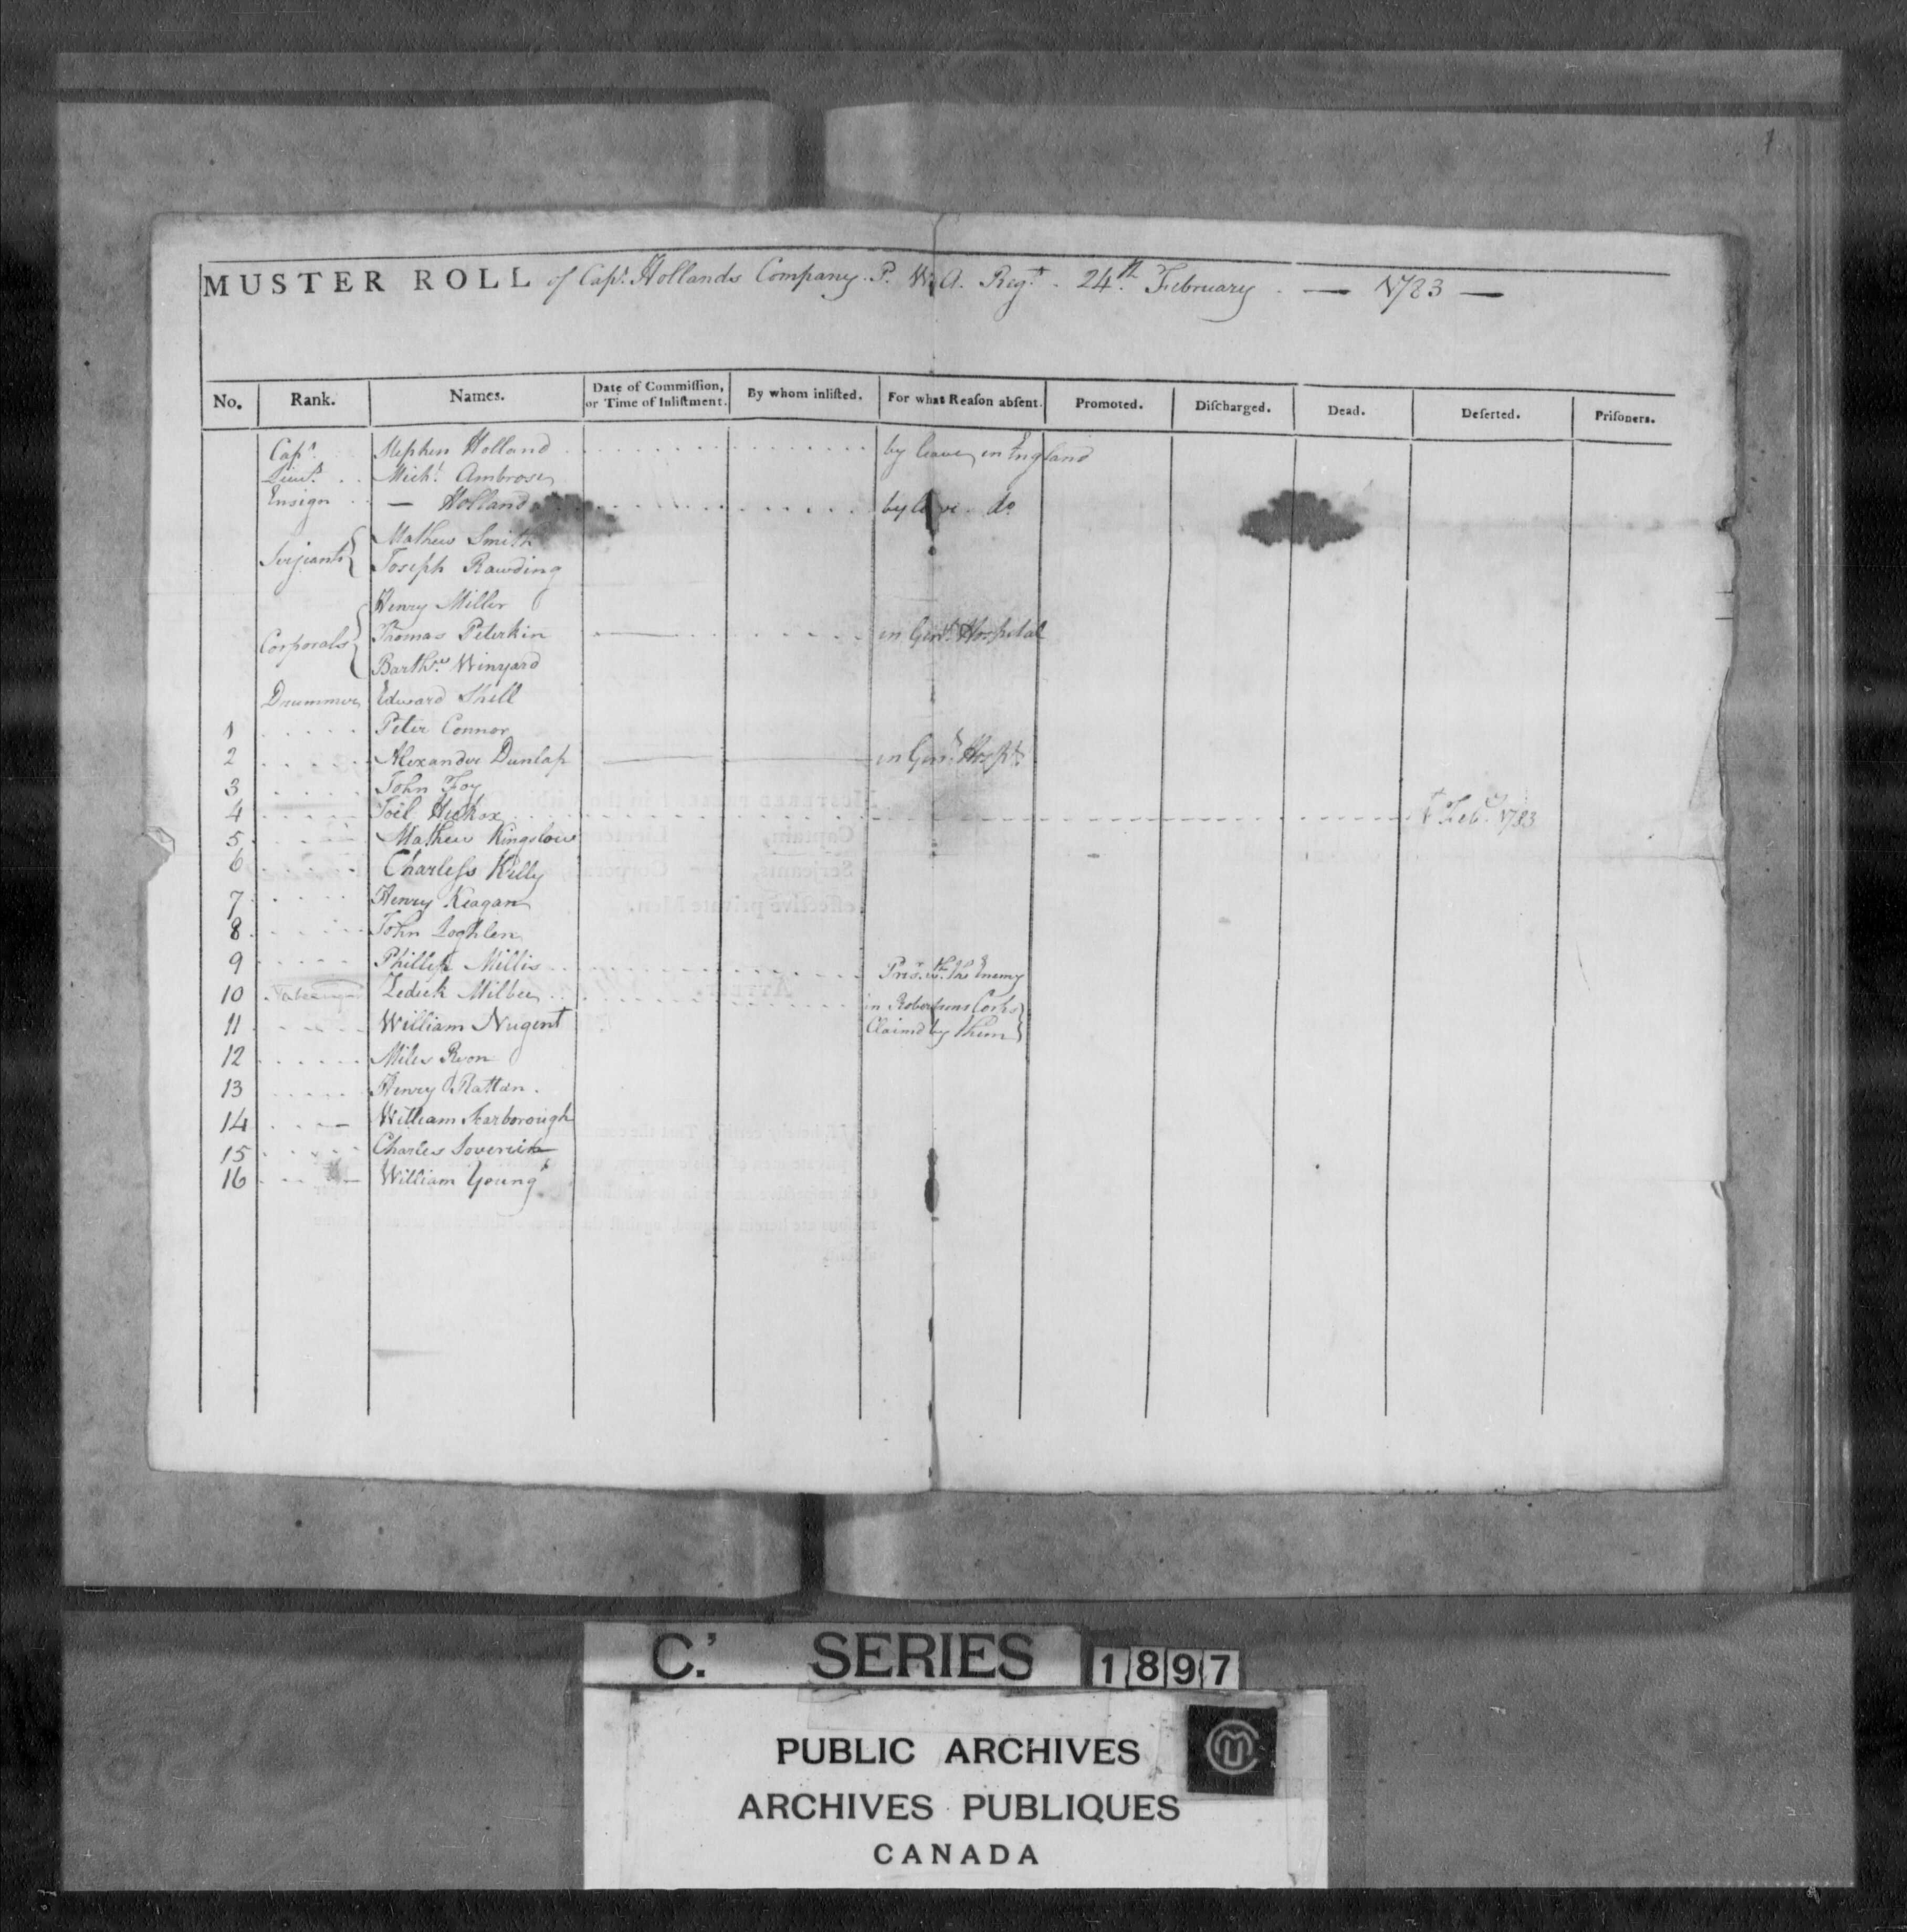 1
MUSTER ROLL of Capt. Hollands Company. P. W. A. Regt. 24th. February — 1783 —
No. Rank. Names. Date of Commiſſion, or Time of Inliſtment. By whom inliſted. For what Reaſon abſent. Promoted. Diſcharged. Dead. Deſerted. Priſoners.
Capt. Stephen Holland by leave, in England
Lieut. Michl. Ambrose
Ensign — Holland by leave do
Serjeants Mathew Smith
Joseph Rawding
Henry Miller
Corporals Thomas Peterkin in Genl. Hospital
Barthw. Winyard
Drummer Edward Shell
1 Peter Connor
2 Alexander Dunlap in Genl. Hospl.
3 John Foy
4 Joël Hickox Feby. 1783
5 Mathew Kingslow
6 Charleſs Killy
7 Henry Keagan
8 John Loghlen
9 Phillip Millis Prisr. wth. the Enemy
10 Zedick Milbee in Robertsons Corps
11 William Nugent Claimd by them
12 Miles Ryon
13 Henry Rattan
14 William Scarborough
15 Charles Soverein
16 William Young
C. SERIES 1897
PUBLIC ARCHIVES
ARCHIVES PUBLIQUES
CANADA